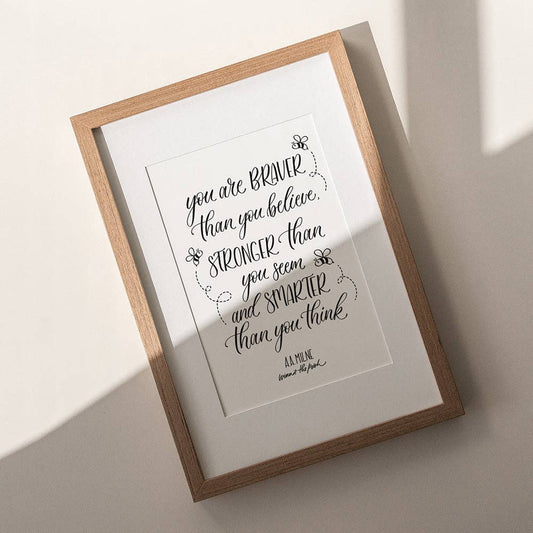 you are BRAVER
than you believe,
STRONGER than
you seem
and SMARTER
than you think
A.A. MILNE
winnie the pooh